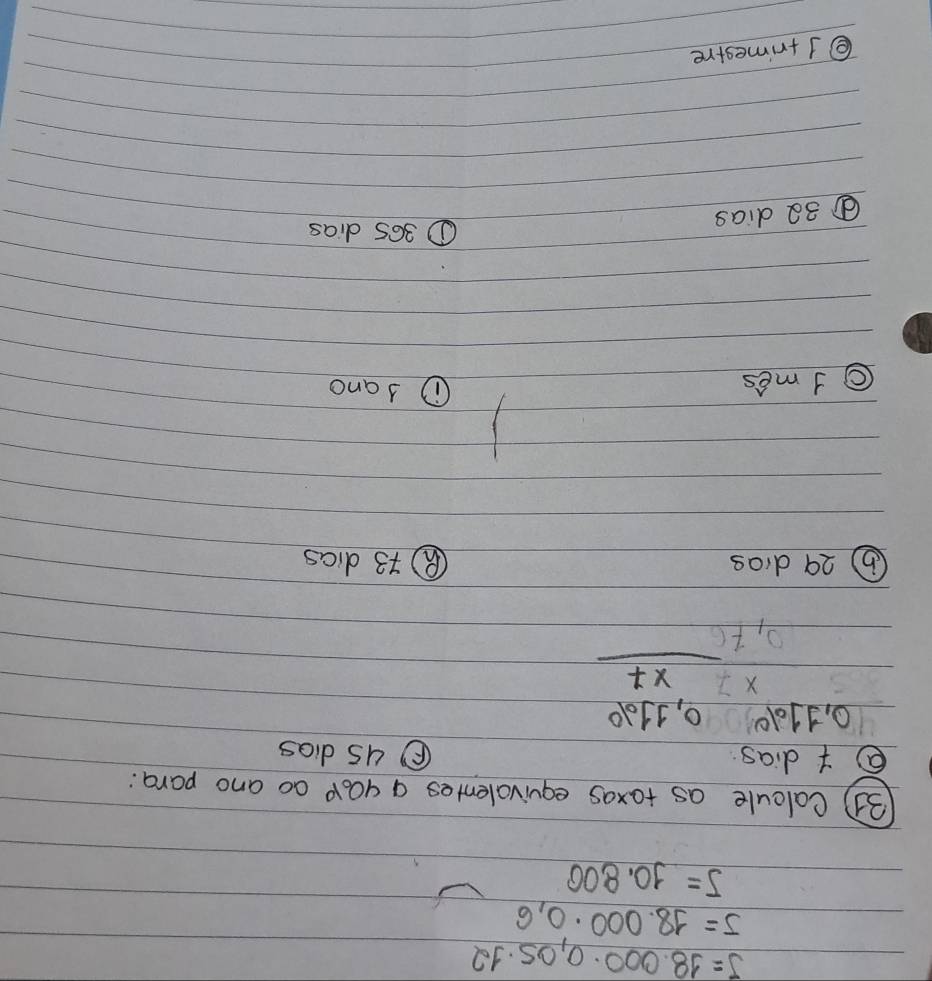 J = 18.000 · 0,05 · 12
J = 18.000 · 0,6
J = 10.800
31 Calcule as taxas equivalentes a 40% ao ano para:
a 7 dias. f 45 dias
0,11% 0,11%
x 7 x 7
0,76
b 29 dias h 73 dias
c 1 mês i 1 ano
d 32 dias j 365 dias
e 1 trimestre